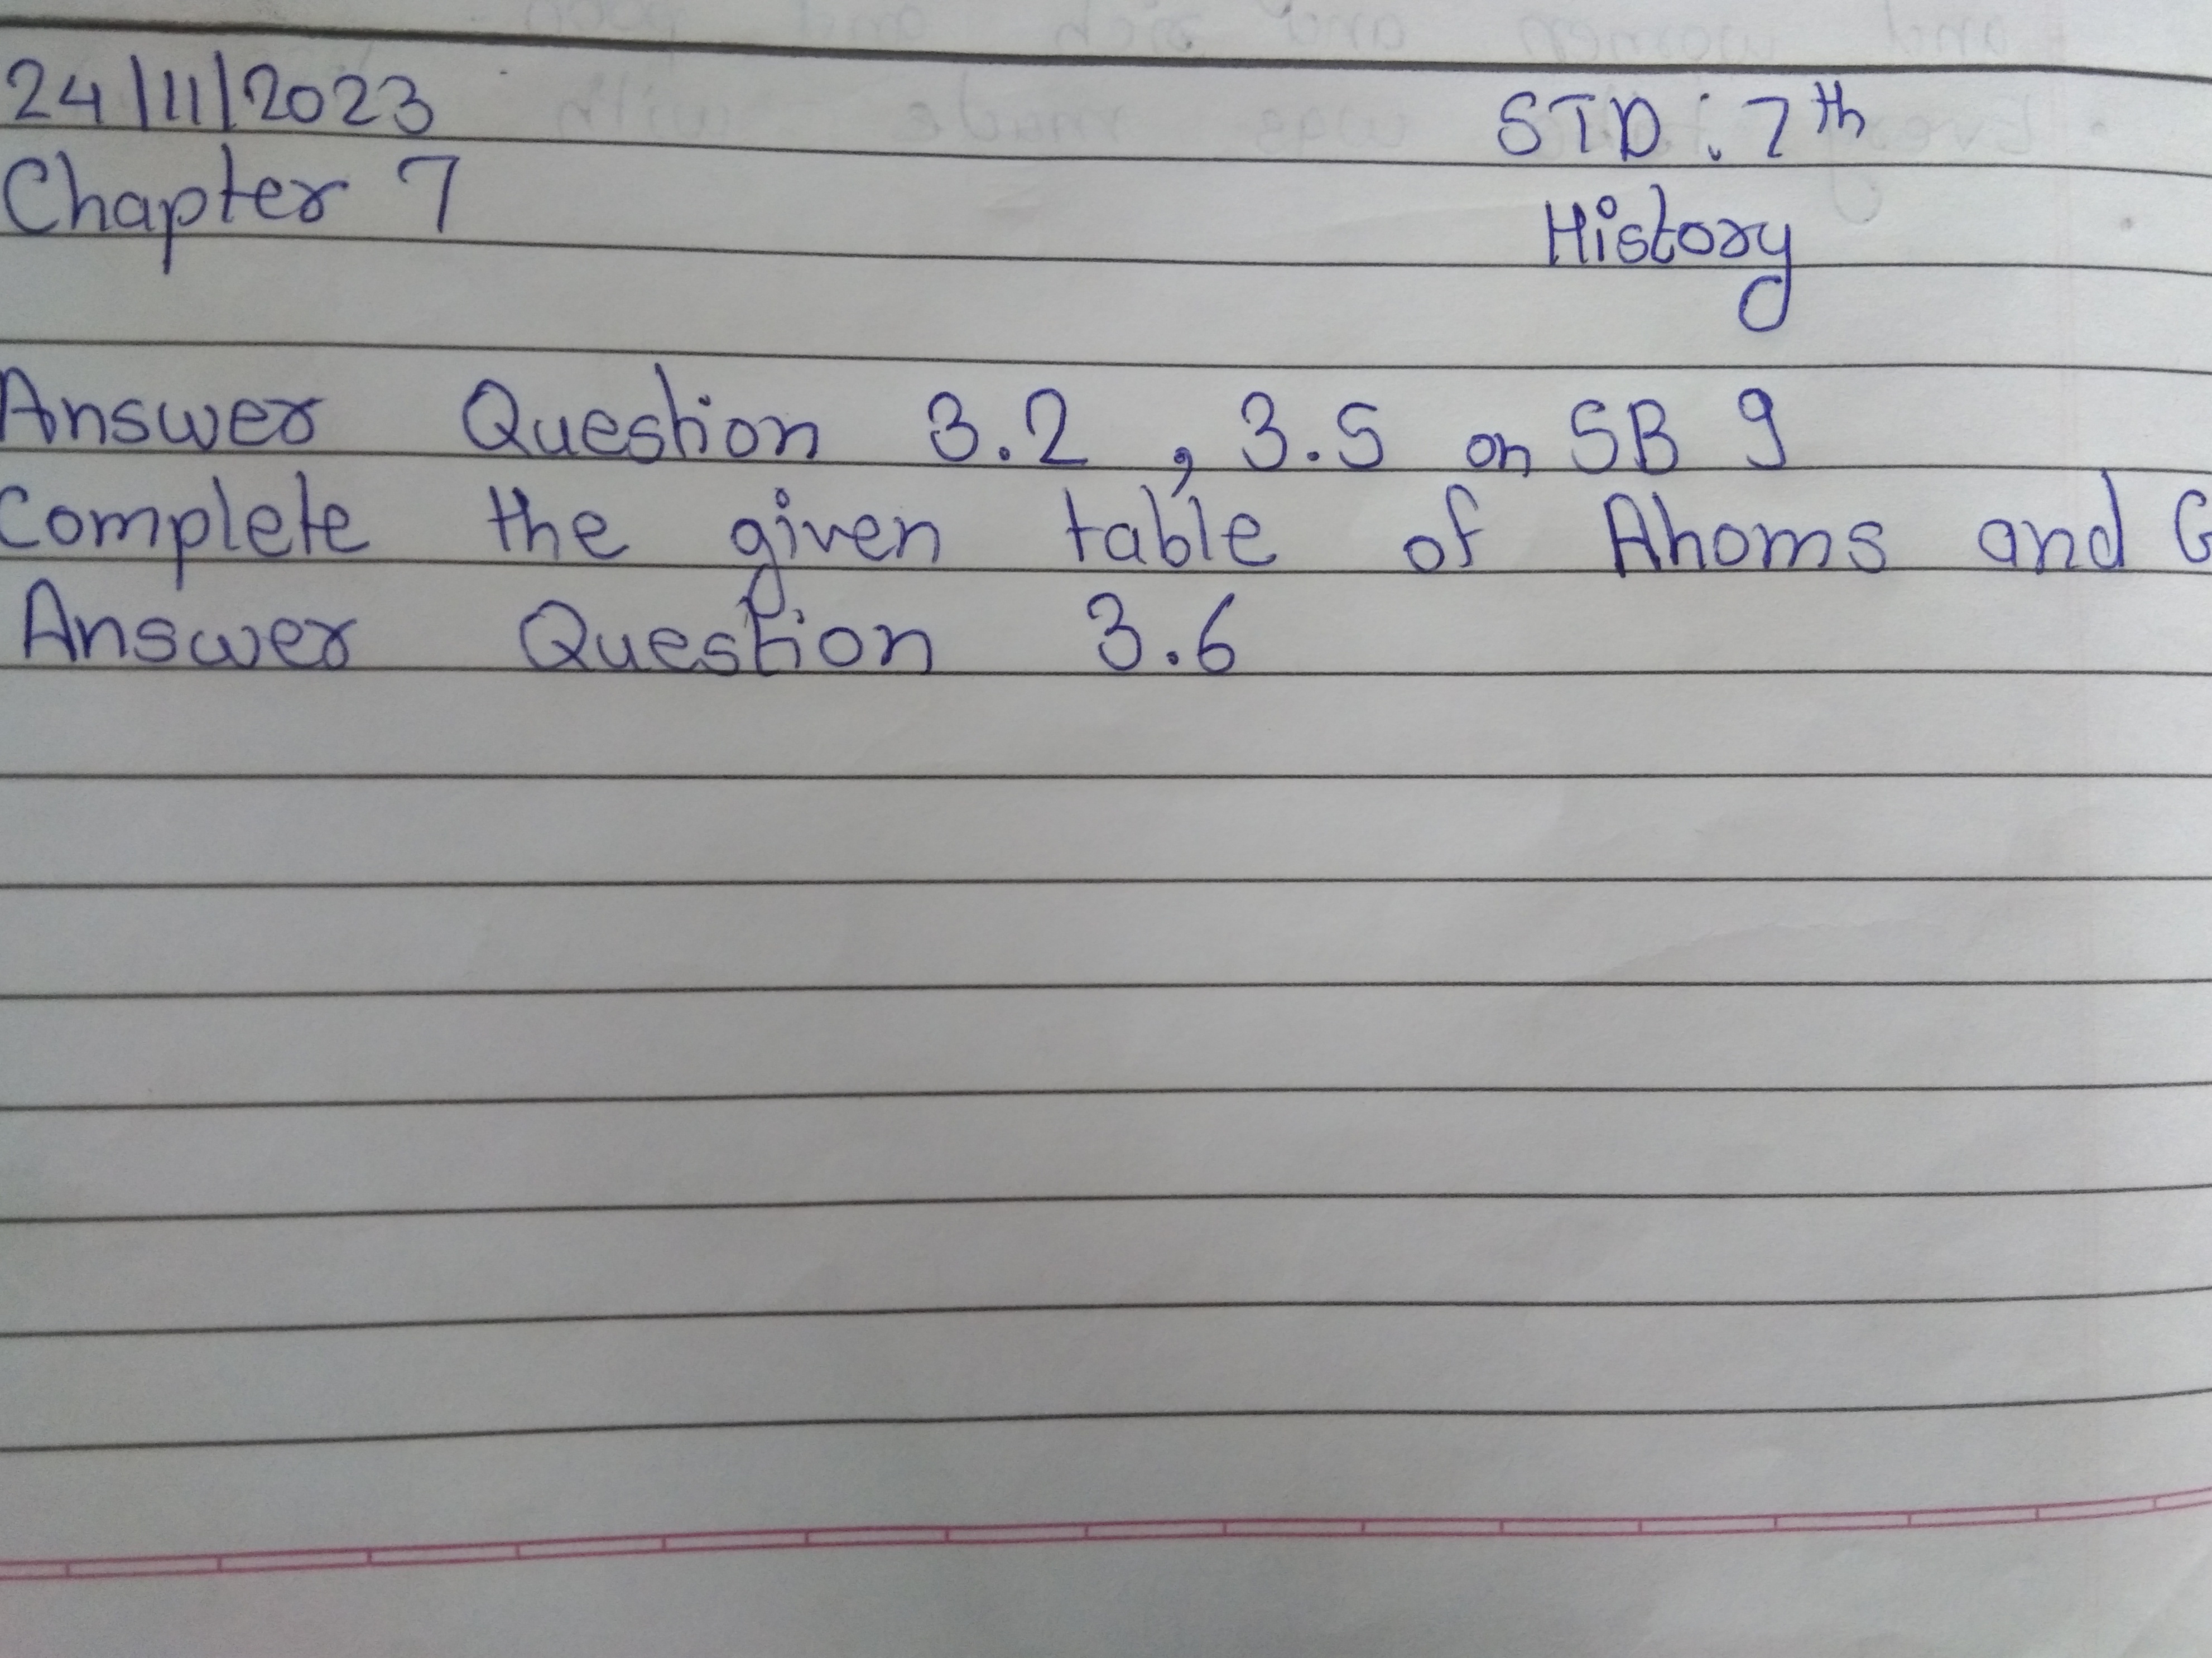 24/11/2023
STD : 7th
Chapter 7
History
Answer Question 3.2 , 3.5 on SB 9
Complete the given table of Ahoms and G
Answer Question 3.6